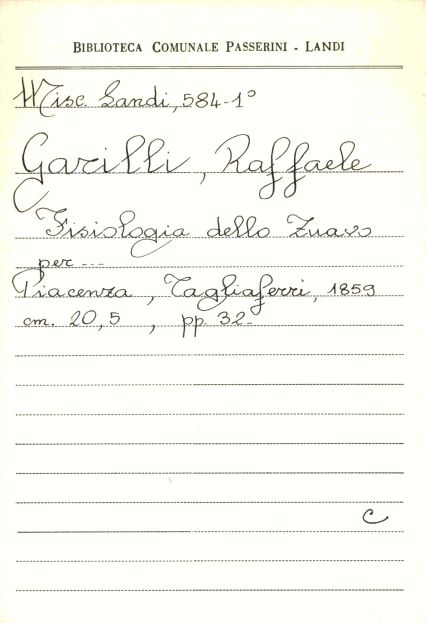 BIBLIOTECA COMUNALE PASSERINI - LANDI
Misc. Landi, 584-1°
Garilli, Raffaele
Fisiologia dello Zuavo
per ...
Piacenza, Tagliaferri, 1859
cm. 20,5, pp. 32.
C